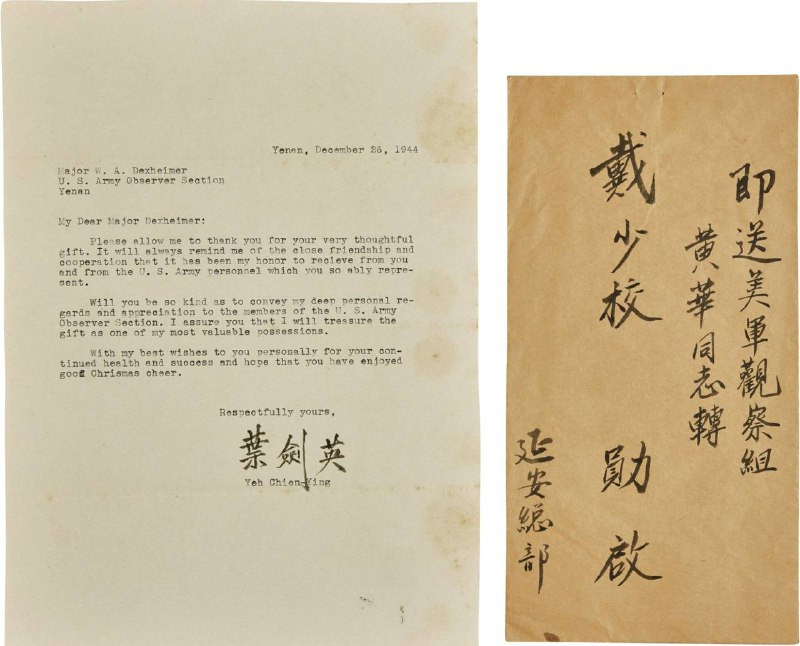 Yenan, December 26, 1944
Major W. A. Dexheimer
U. S. Army Observer Section
Yenan
My Dear Major Dexheimer:
Please allow me to thank you for your very thoughtful
gift. It will always remind me of the close friendship and
cooperation that it has been my honor to recieve from you
and from the U. S. Army personnel which you so ably repre-
sent.
Will you be so kind as to convey my deep personal re-
gards and appreciation to the members of the U. S. Army
Observer Section. I assure you that I will treasure the
gift as one of my most valuable possessions.
With my best wishes to you personally for your con-
tinued health and success and hope that you have enjoyed
good Chrismas cheer.
Respectfully yours,
葉劍英
Yeh Chien-Ying
即送美軍觀察組
黃華同志轉
戴少校 勛啟
延安總部